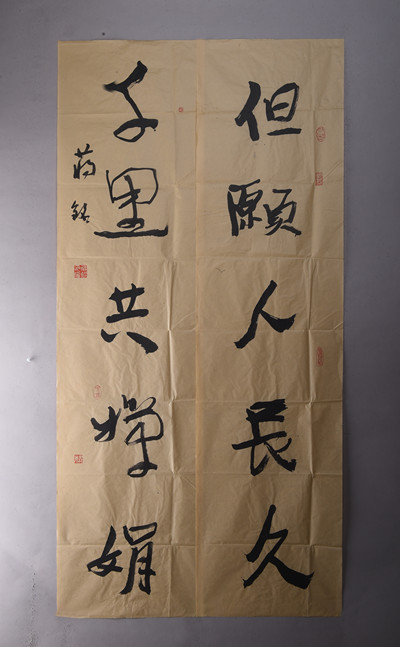 但願人長久
千里共嬋娟
蔣銘